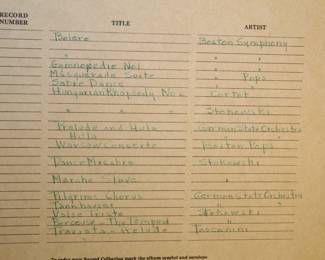 RECORD
NUMBER TITLE ARTIST
Bolero Boston Symphony
" "
Gymnopedie No1 " "
Masquerade Suite " Pops
Sabre Dance " "
Hungarian Rhapsody No 2 Cortot
" " Stokowski
Prelude and Hula German State Orchestra
Hula " "
Warsaw Concerto Boston Pops
Dance Macabre Stokowski
Marche Slave "
Pilgrims Chorus German State Orchestra
Tannhauser " "
Valse Triste Stokowski
Berceuse - The Tempest "
Traviata - Prelude Toscanini
your Record Collection mark the album symbol and